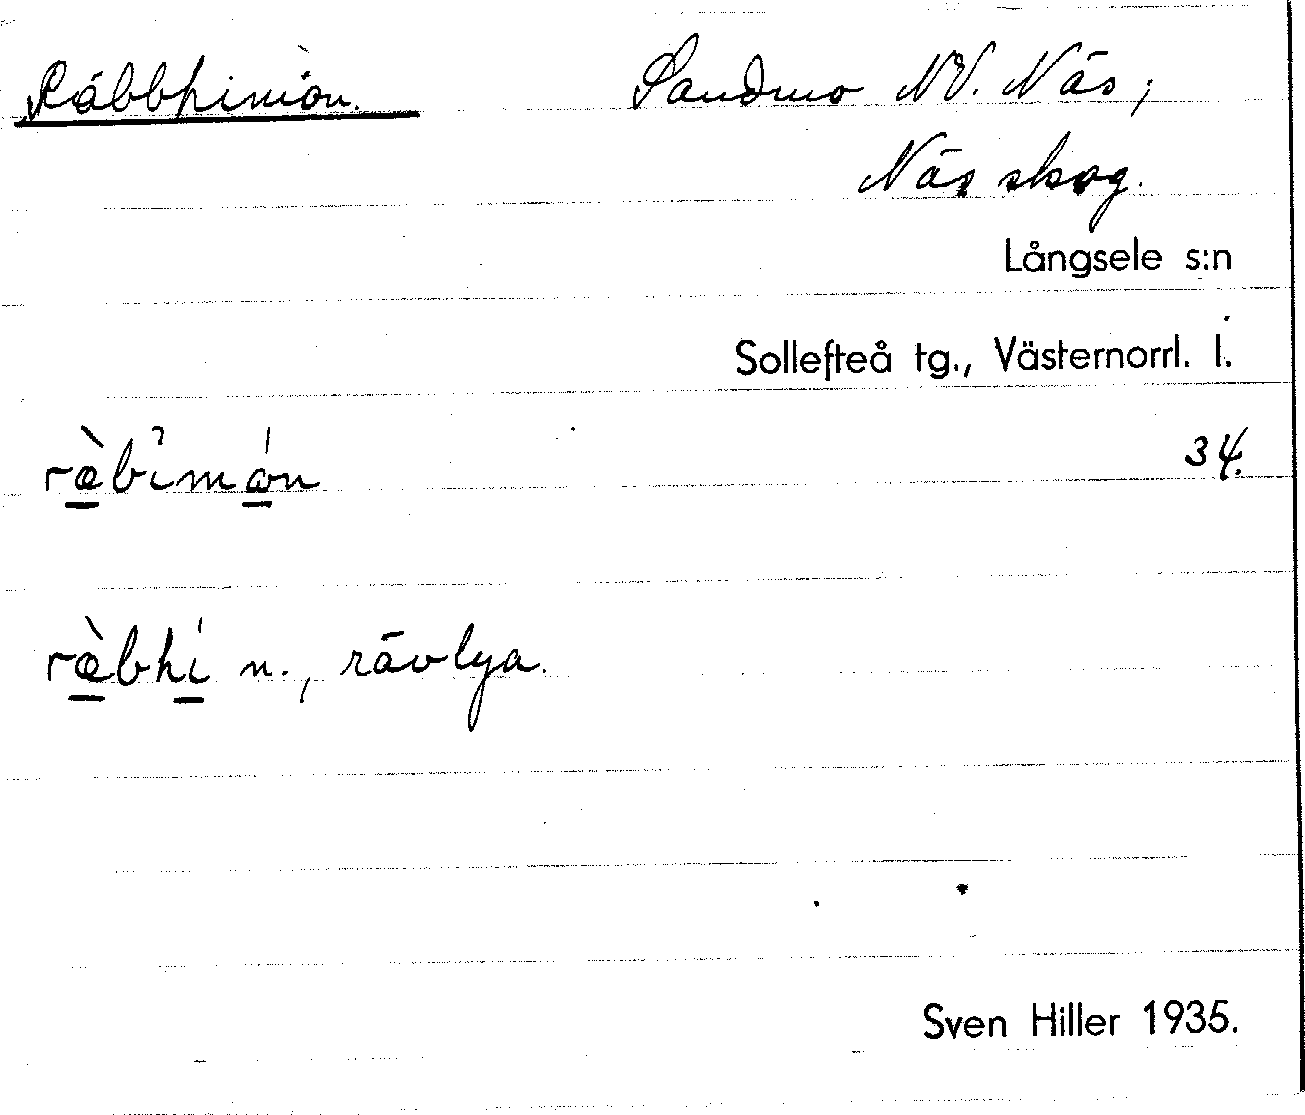 Råbbhimòn. Sandmo NV. Näs;
Näs skog.
Långsele s:n
Sollefteå tg., Västernorrl. l.
ràbi̓món 34.
ràbhí n., rävlya.
Sven Hiller 1935.